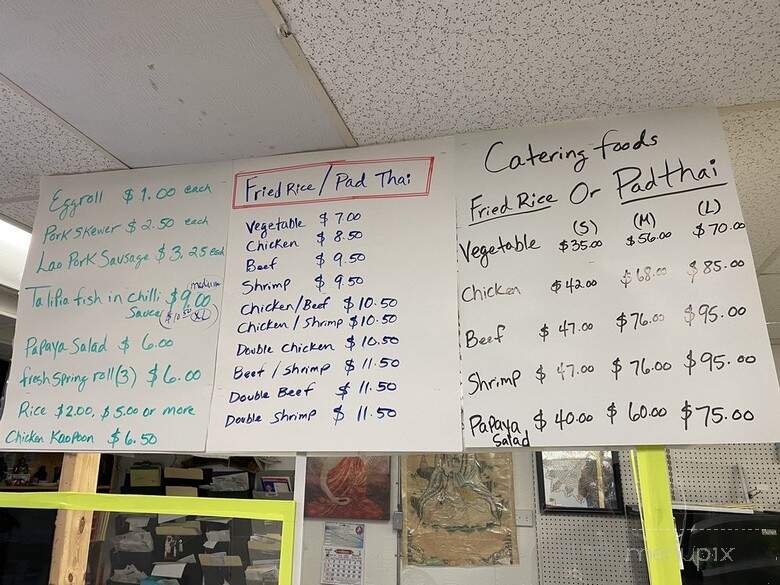 Eggroll $1.00 each
Pork skewer $2.50 each
Lao Pork Sausage $3.25 each
Talipia fish in chilli $9.00 medium
Sauce $10.50 XL
Papaya Salad $6.00
fresh spring roll (3) $6.00
Rice $2.00, $5.00 or more
Chicken Kaopoon $6.50
Fried Rice / Pad Thai
Vegetable $7.00
Chicken $8.50
Beef $9.50
Shrimp $9.50
Chicken/Beef $10.50
Chicken/Shrimp $10.50
Double Chicken $10.50
Beef/Shrimp $11.50
Double Beef $11.50
Double Shrimp $11.50
Catering foods
Fried Rice Or Padthai
(S) (M) (L)
Vegetable $35.00 $56.00 $70.00
Chicken $42.00 $68.00 $85.00
Beef $47.00 $76.00 $95.00
Shrimp $47.00 $76.00 $95.00
Papaya Salad $40.00 $60.00 $75.00
menupix